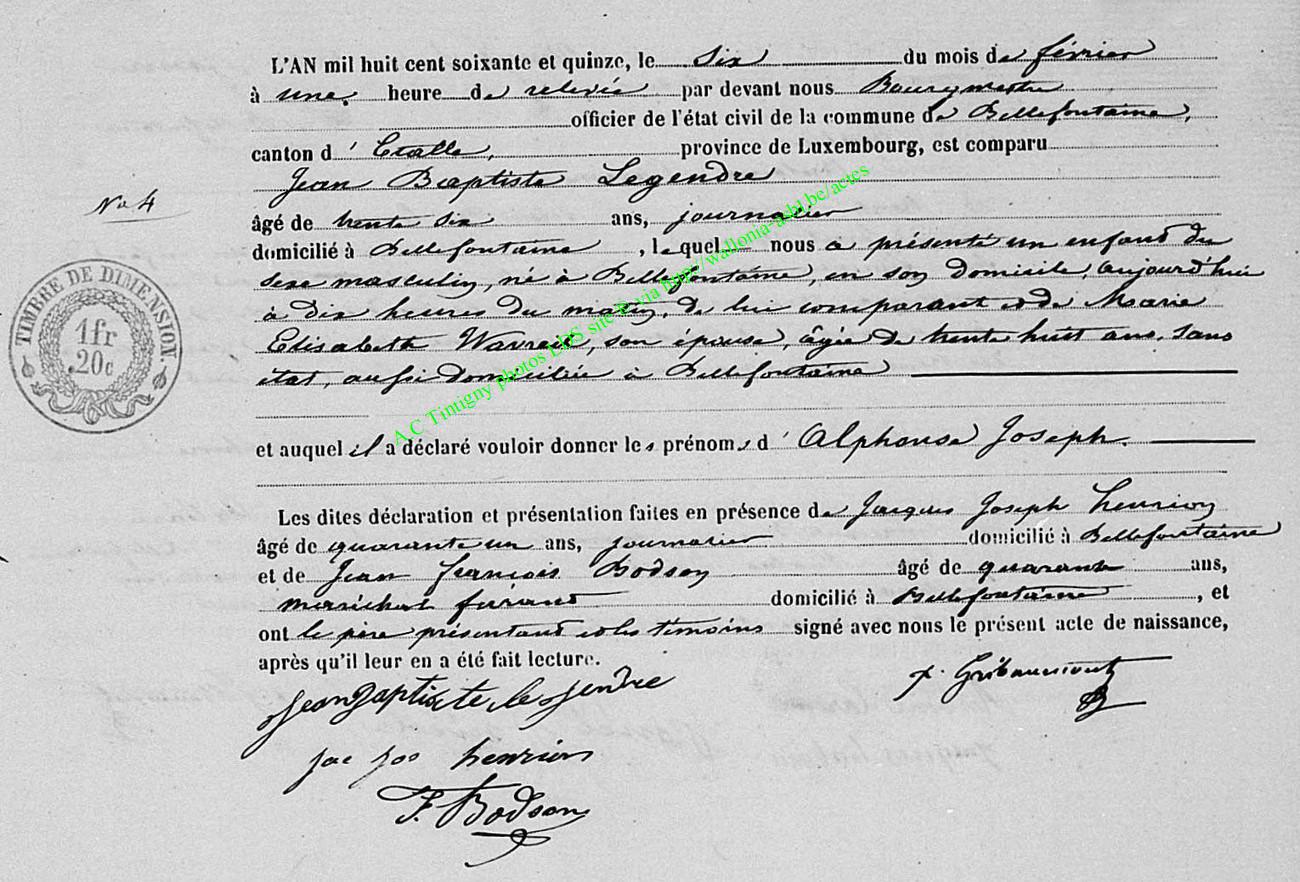 L'AN mil huit cent soixante et quinze, le six du mois de février
à une heure de relevée par devant nous Bourgmestre
officier de l'état civil de la commune de Bellefontaine,
canton d' Etalle, province de Luxembourg, est comparu
Jean Baptiste Legendre
No 4
âgé de trente six ans, journalier
domicilié à Bellefontaine, lequel nous a présenté un enfant du
sexe masculin, né à Bellefontaine, en son domicile, aujourd'hui
à dix heures du matin, de lui comparant et de Marie
Elisabeth, son épouse, âgée de trente huit ans, sans
état, aussi domiciliée à Bellefontaine
TIMBRE DE DIMENSION
1 fr
20c
A.C Tintigny photos EHS site & via http://wallonia-asbl.be/actes
et auquel il a déclaré vouloir donner les prénoms d' Alphonse Joseph.
Les dites déclaration et présentation faites en présence de Jacques Joseph henrion
âgé de quarante un ans, journalier domicilié à Bellefontaine
et de Jean François Bodson âgé de quarante ans,
maréchal ferrant domicilié à Bellefontaine, et
ont le père présentant et les témoins signé avec nous le présent acte de naissance,
après qu'il leur en a été fait lecture.
Jean Baptiste le gendre
jac jos henrion
F. Bodson